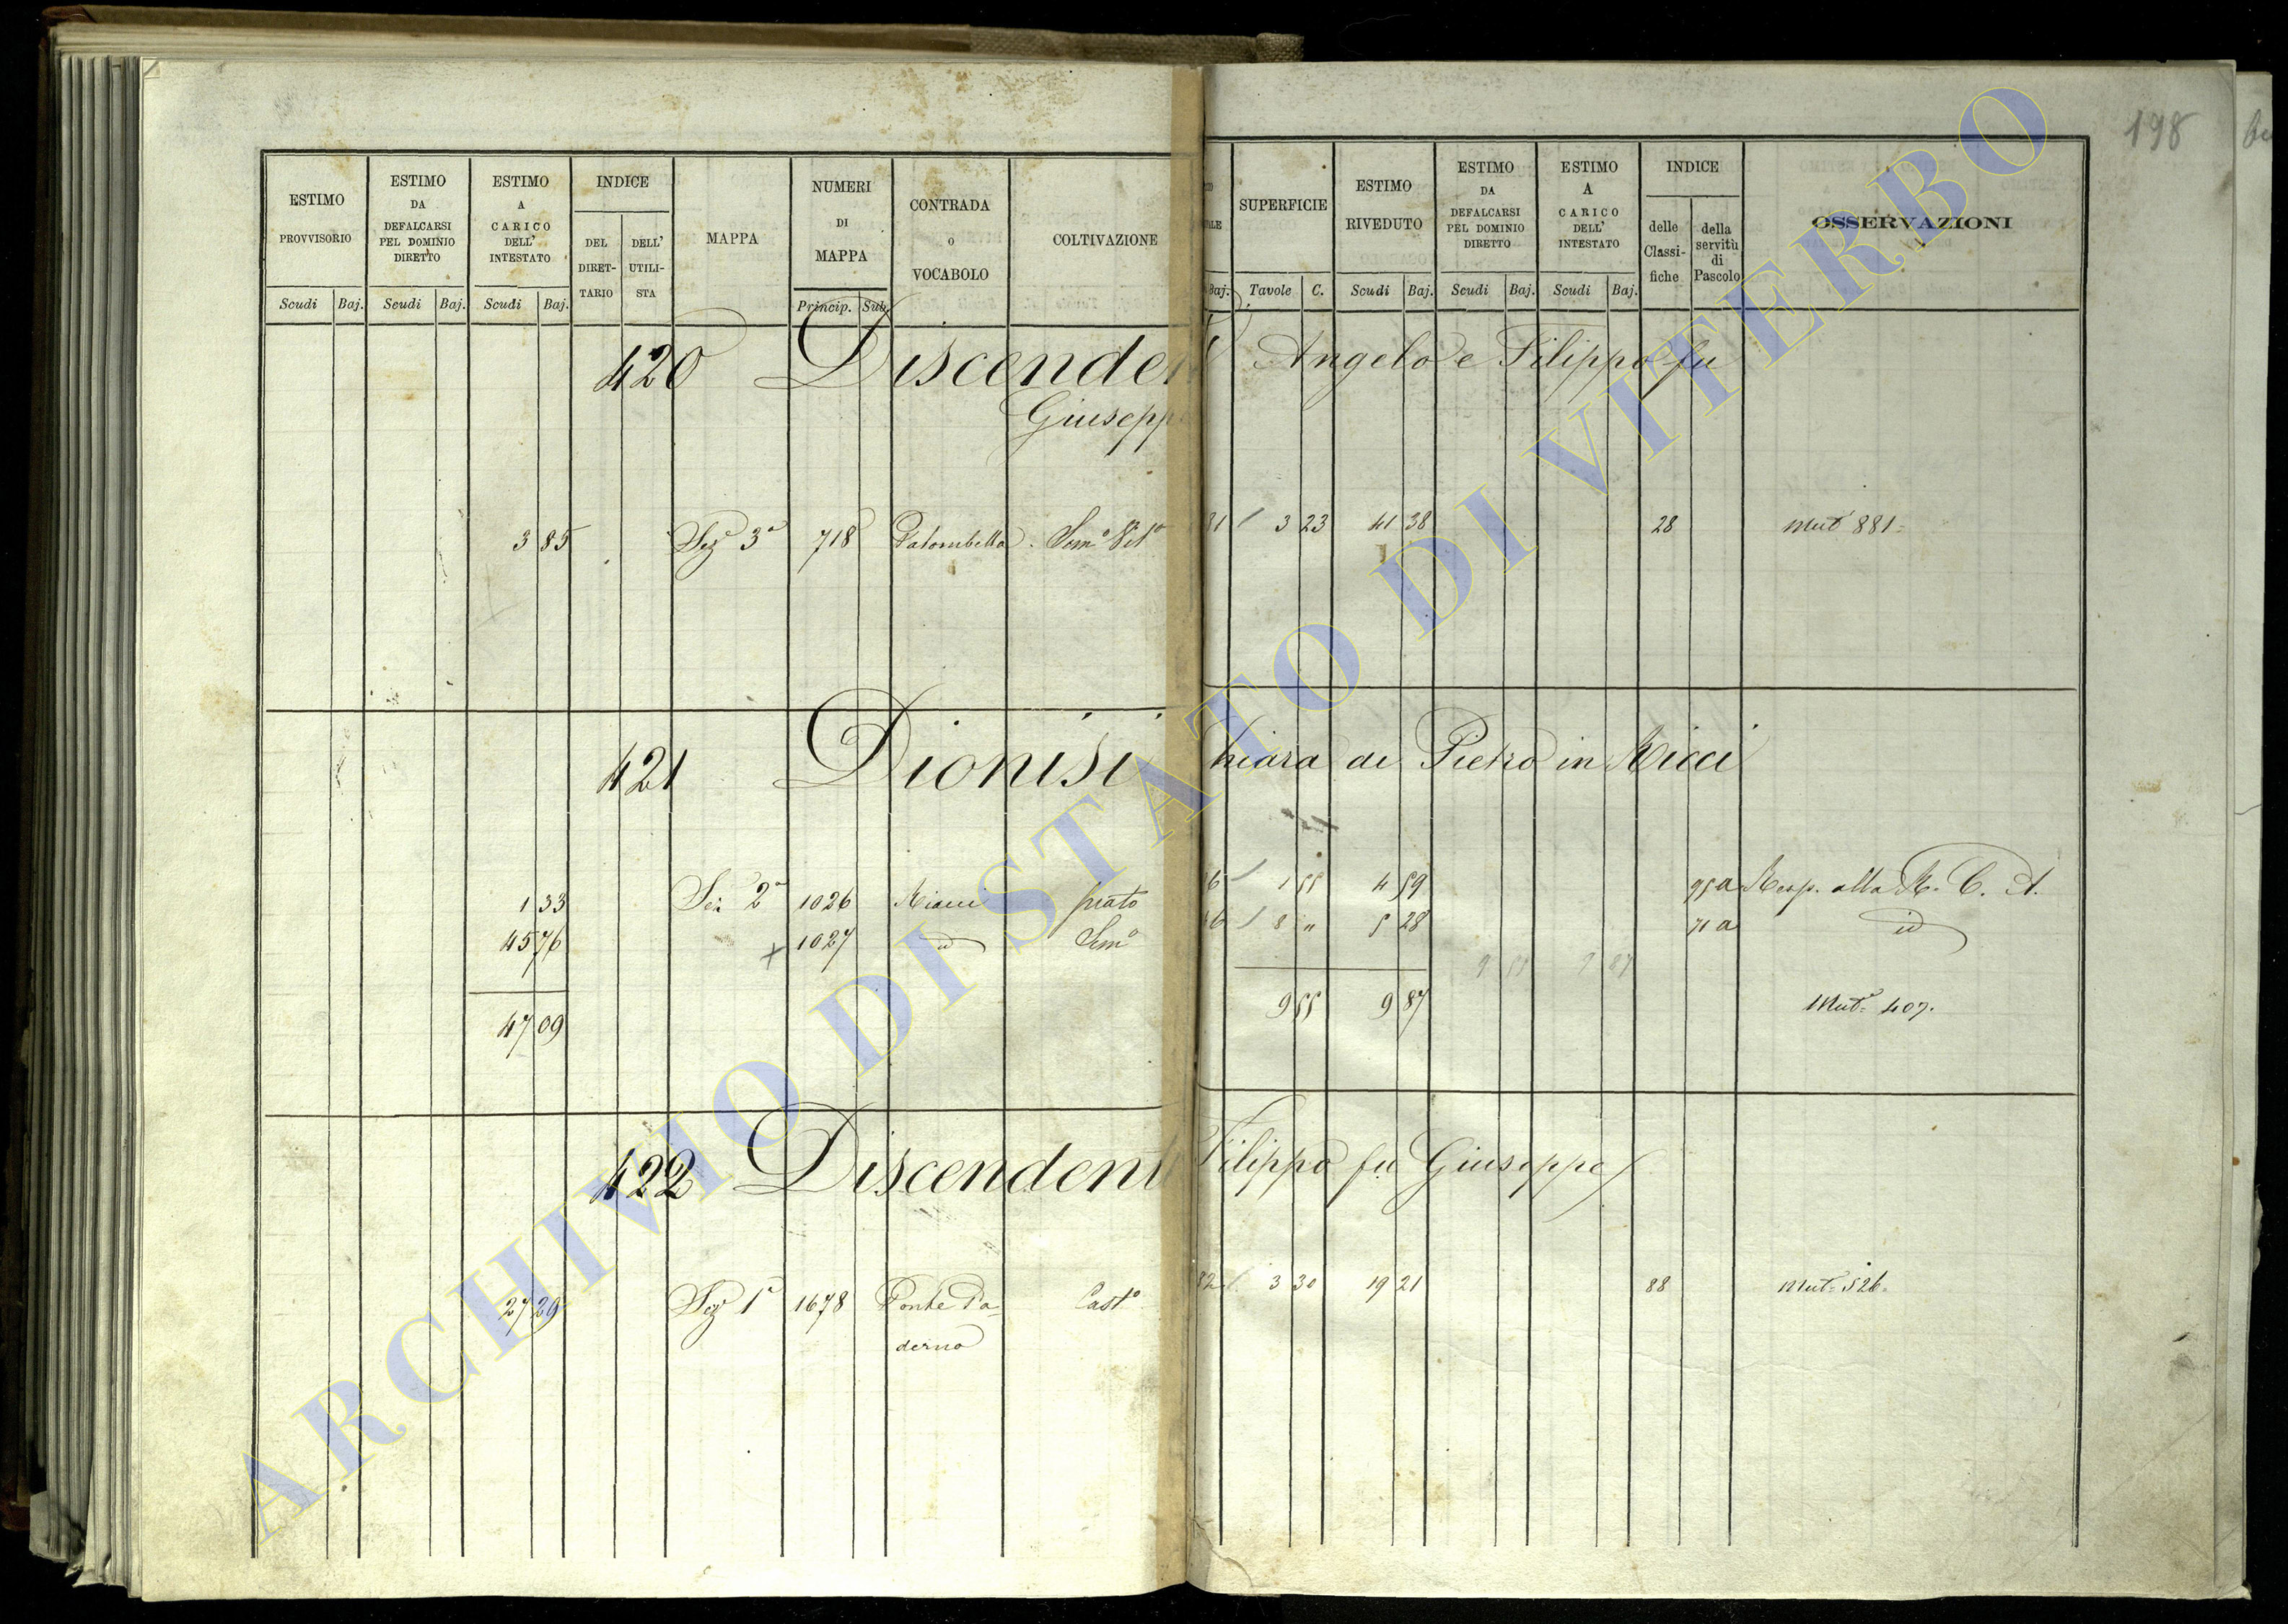 198
ESTIMO PROVVISORIO Scudi Baj.
ESTIMO DA DEFALCARSI PEL DOMINIO DIRETTO Scudi Baj.
ESTIMO A CARICO DELL' INTESTATO Scudi Baj.
INDICE DEL DIRET- TARIO DELL' UTILI- STA
MAPPA
NUMERI DI MAPPA Princip. Sub.
CONTRADA o VOCABOLO
COLTIVAZIONE
Baj.
SUPERFICIE Tavole C.
ESTIMO RIVEDUTO Scudi Baj.
ESTIMO DA DEFALCARSI PEL DOMINIO DIRETTO Scudi Baj.
ESTIMO A CARICO DELL' INTESTATO Scudi Baj.
INDICE delle Classi- fiche della servitù di Pascolo
OSSERVAZIONI
420 Discenden Angelo e Filippo fu
Giuseppe
3 85 Sez 3a 718 Palombella Semo Vito 81 3 23 41 38 28 Muta 881
421 Dionisi hiara di Pietro in Ricci
1 33 Sez 2a 1026 prato 6 1 55 4 59 75 a Resp. alla R. C. A.
45 76 1027 id Semo 6 8 " 5 28 71 a id
9 55 9 87
47 09 9 55 9 87 Muta 407.
422 Discendenti Filippo fu Giuseppe
27 29 Sez 1a 1678 Ponte Pa- Casto 82 3 30 19 21 88 Muta 526.
derno
ARCHIVIO DI STATO DI VITERBO